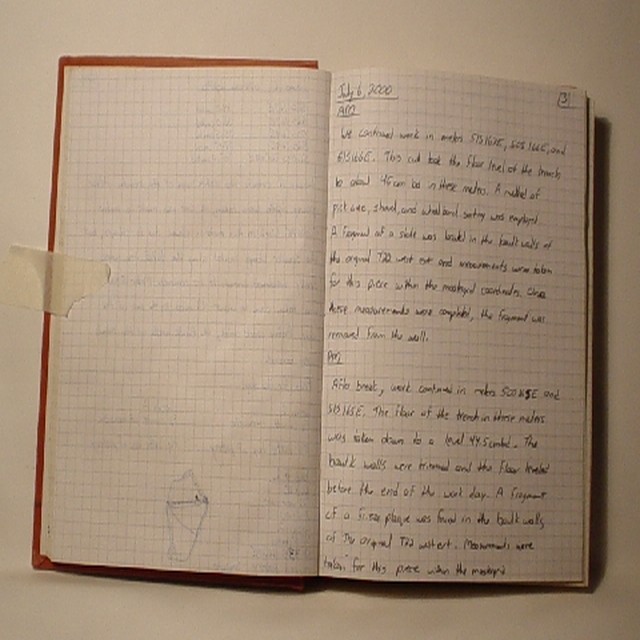 July 6, 2000
131
AM
We continued work in meters S1S162E, S0S166E, and
S1S166E. This cut took the floor level of the trench
to about 45 cm bd in these meters. A method of
pick axe, shovel, and wheel and sorting was employed.
A fragment of a was in the baulk walls of
the original T22 west ext and measurements were taken
for this piece within the mastergrid coordinates. Once
these measurements were completed, the fragment was
removed from the wall.
PM
After break, work continued in meters and
S1S165E. The floor of the trench in these meters
was taken down to a level 44.5cmbd. The
baulk walls were trimmed and the floor leveled
before the end of the work day. A fragment
of a frieze plaque was found in the baulk walls
of the original T22 west ext. Measurements were
taken for this piece within the mastergrid